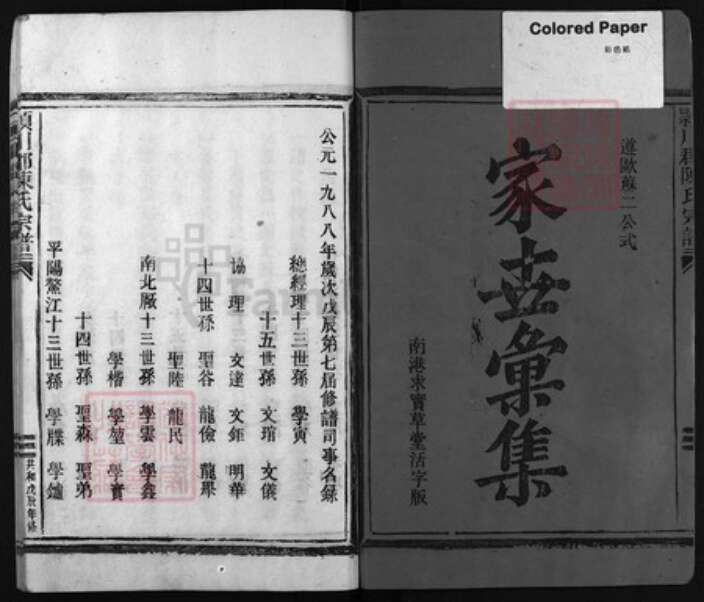 Colored Paper
彩色紙
遵歐蘇二公式
家世彙集
南港求實草堂活字版
公元一九八八年歲次戊辰第七届修譜司事名錄
總經理十三世孫 學寅
十五世孫 文琯 文儀
協理 文達 文鉅 明華
十四世孫 聖谷 龍儉 龍舉
聖陸 龍民
南北廠十三世孫 學雲 學鑫
學楷 學堃 學寶
十四世孫 聖森 聖弟
平陽鰲江十三世孫 學牒 學鑪
潁川郡陳氏宗譜
共和戊辰年修